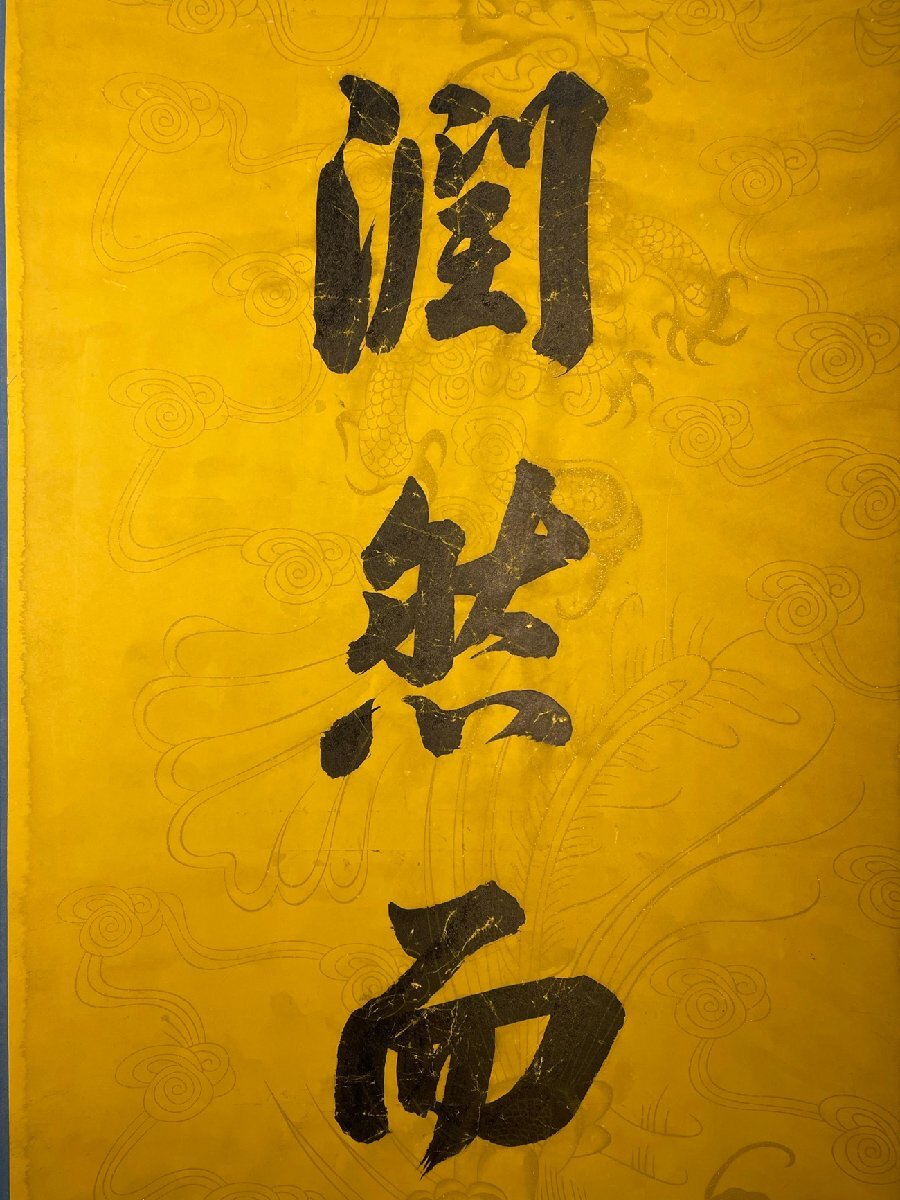 潤然而